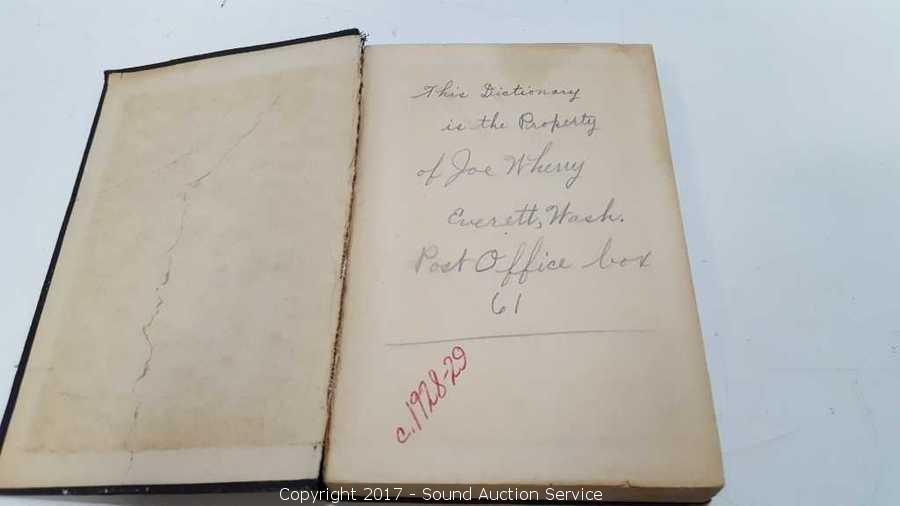 This Dictionary
is the Property
of Joe Wherry
Everett, Wash.
Post Office box
61
c. 1928-29
Copyright 2017 - Sound Auction Service